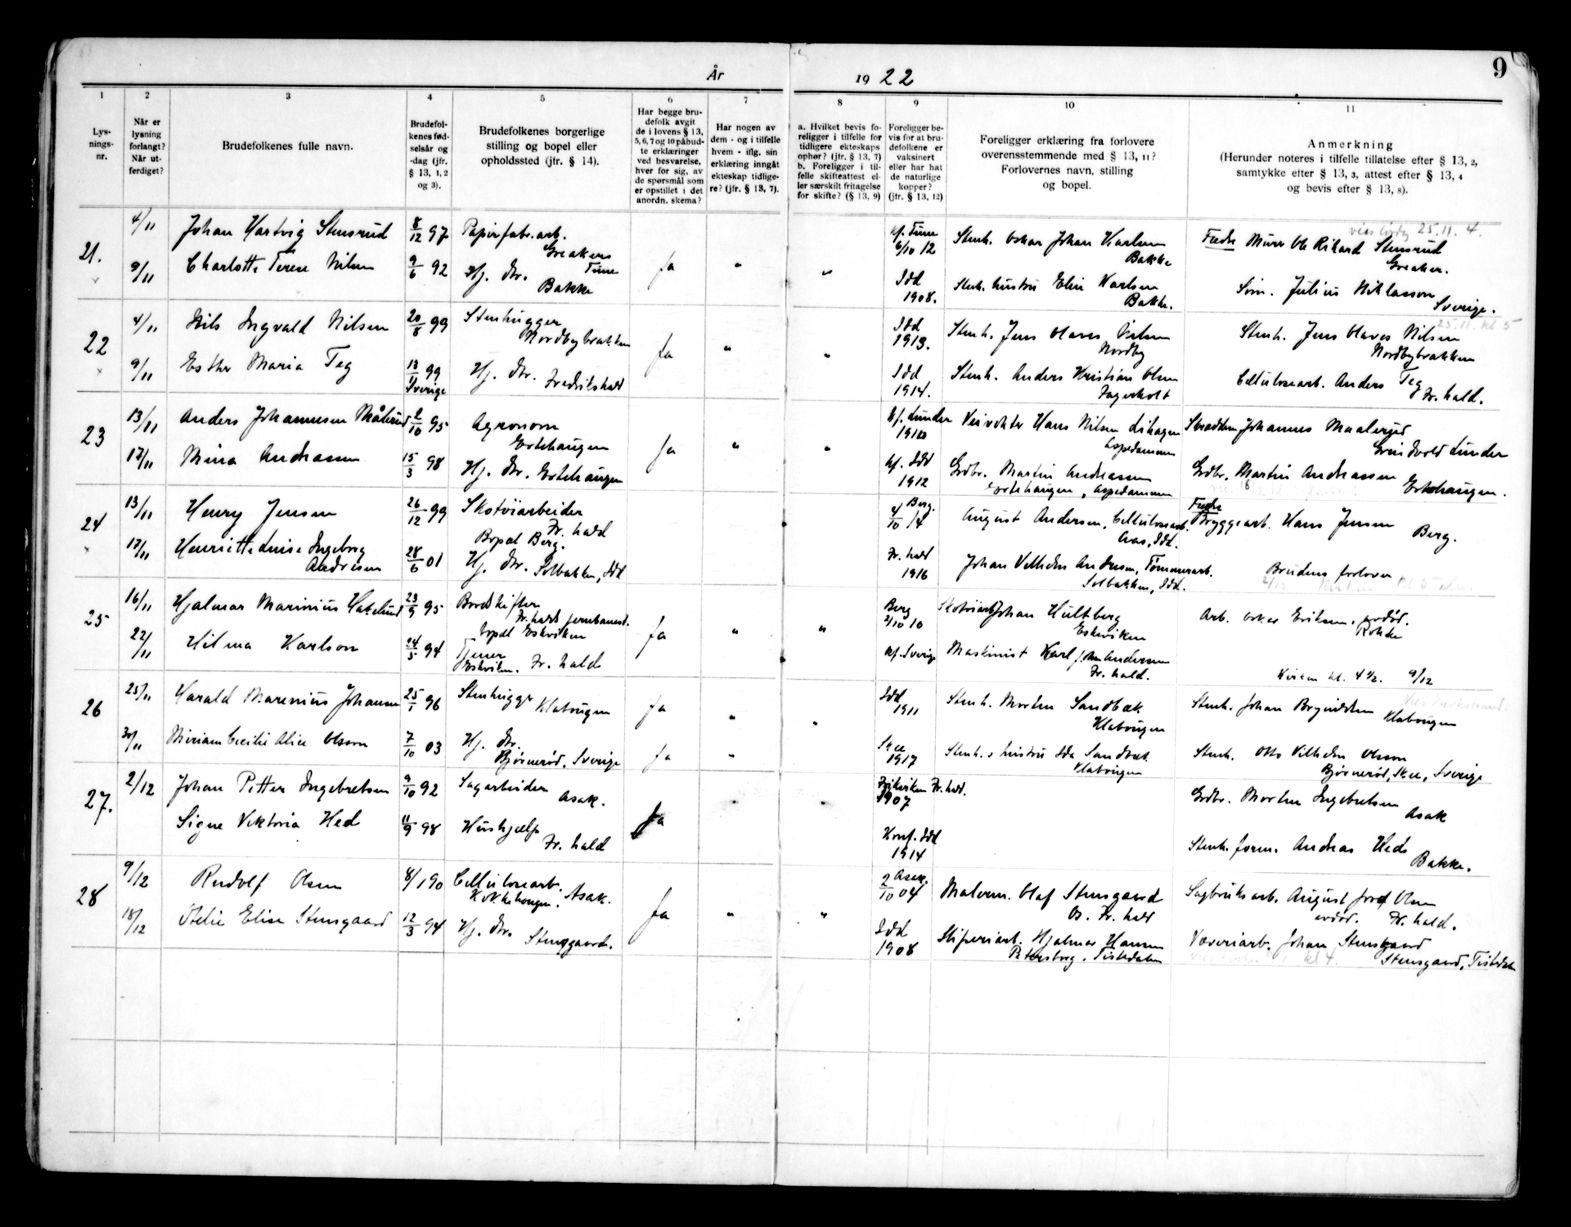 År
19 22
9
1
2
3
4
5
6
7
8
9
10
11
Lys-
nings-
nr.
Når er
lysning
forlangt?
Når ut-
ferdiget?
Brudefolkenes fulle navn.
Brudefol-
kenes fød-
selsår og
-dag (jfr.
§ 13, 1, 2
og 3).
Brudefolkenes borgerlige
stilling og bopel eller
opholdssted (jfr. § 14).
Har begge bru-
defolk avgit
de i lovens § 13,
5, 6, 7 og 10 påbud-
te erklæringer
ved besvarelse,
hver for sig, av
de spørsmål som
er opstillet i det
anordn. skema?
Har nogen av
dem - og i tilfelle
hvem - iflg. sin
erklæring inngått
ekteskap tidlige-
re? (jfr. § 13, 7).
a. Hvilket bevis fo-
religger i tilfelle for
tidligere ekteskaps
ophør? (jfr. § 13, 7)
b. Foreligger i til-
felle skifteattest el-
ler særskilt fritagelse
for skifte? (§ 13, 9)
Foreligger be-
vis for at bru-
defolkene er
vaksinert
eller har hat
de naturlige
kopper?
(jfr. § 13, 12)
Foreligger erklæring fra forlovere
overensstemmende med § 13, 11?
Forlovernes navn, stilling
og bopel.
Anmerkning
(Herunder noteres i tilfelle tillatelse efter § 13, 2,
samtykke efter § 13, 3, attest efter § 13, 4
og bevis efter § 13, 8).
21.
4/11
Johan Hartvig Stensrud
8/12 97
Papirfabr.arb.
Greakers
Tune
9/11
Charlotte Terese Nilsen
9/6 92
Hj. Dtr.
Bakke
Ja
"
"
Af. Tune
6/10 12
Idd
1908.
Stenh. Oskar Johan Karlsen
Bakke
Stenh. hustru Elin Karlsen
Bakke.
25.11. 4.
Fredr Murer Ole Rikard Stensrud
Greaker.
Julius Niklasson
Sverige.
22
4/11
Nils Ingvald Nilsen
20/8 99
Stenhugger
Nordbybrakken
9/11
Esther Maria Teg
13/11 99
Sverige
Hj. Dtr. Fredrikshald
Ja
"
"
Idd
1913.
Idd
1914.
Stenh. Jens Olaves Nilsen
Nordby
Stenh. Anders Kristian Olsen
Fagerholt
25.11. kl 5
Stenh. Jens Olaves Nilsen
Nordbybrakken
Cellulosearb. Anders Teg
Fr. hald.
23
13/11
Anders Johannesen Målerud
2/10 95
Agronom
Ertehaugen
17/11
Mina Andreassen
15/3 98
Hj. Dtr. Ertehaugen
Ja
"
"
1910
Af. Idd
1912
Veivokter Hans Nilsen
Aspedammen
Grdbr. Martin Andreassen
Ertehaugen, Aspedammen
Skrædder Johannes Maalerud
Grdbr. Martin Andreassen
Ertehaugen.
24
13/11
Henry Jensen
26/12 99
Skotøiarbeider
Fr. hald
Bopæl Berg.
17/11
Henriette Luise Ingeborg
Andresen
28/6 01
Hj. Dtr. Solbakken, Idd
Berg.
4/10 14
Fr. hald
1916
August Andersen, Cellulosearb.
Aas, Idd.
Johan Vilhelm Andresen, Tømmerarb.
Solbakken, Idd.
Fredr
Bryggearb. Hans Jensen
Berg.
Brudens forlover
25
16/11
Hjalmar Marinius Hakelund
23/9 95
Fr. hald jernbanest.
bopæl Eskeviken
22/11
Hilma Karlson
24/5 94
Tjener
Eskeviken. Fr. hald
Ja
"
"
Berg
2/10 10
Af. Sverige
Skotøiarb. Johan Hultberg
Eskeviken
Maskinist Karl Joh. Andersen
Fr. hald.
Arb. Oskar Eriksen, avdød.
Rokke
Kirken kl. 4 ½. 9/12
26
25/11
Harald Marenius Johansen
25/1 96
Stenhugger
Klabougen
30/11
Miriam Cecilie Alice Olsson
7/10 03
Hj. Dtr.
Bjørnerød, Sverige
Ja
Ja
"
"
"
Idd
1911
Skee
1917
Stenh. Morten Sandbæk
Klabougen
Stenh.s hustru Ida Sandbæk
Klabougen
Stenh. Johan Brynildsen
Klabougen
Stenh. Otto Vilhelm Olsson
Bjørnerød, Skee, Sverige
27.
2/12
Johan Petter Ingebretsen
9/10 92
Sagarbeider
Asak.
Signe Viktoria Hed
11/9 98
Hushjælp
Fr. hald
Ja
"
"
Frikirken Fr. hald.
1907
Konf. Idd
1914
Grdbr. Morten Ingebretsen
Asak
Stenh. form. Andreas Hed
Bakke.
28
9/12
Rudolf Olsen
8/1 90
Cellulosearb.
Asak.
18/12
Elise Stensgaard
12/3 94
Hj. Dtr.
Stensgaard.
Ja
"
"
Asak.
2/10 04
Idd
1908
Malerm. Olaf Stensgaard
Os. Fr. hald
Sliperiarb. Hjalmar Hansen
Petersborg, Tistedalen
Sagbruksarb. August Josef Olsen
avdød. Fr. hald.
Væveriarb. Johan Stensgaard
Stensgaard, Tistedalen